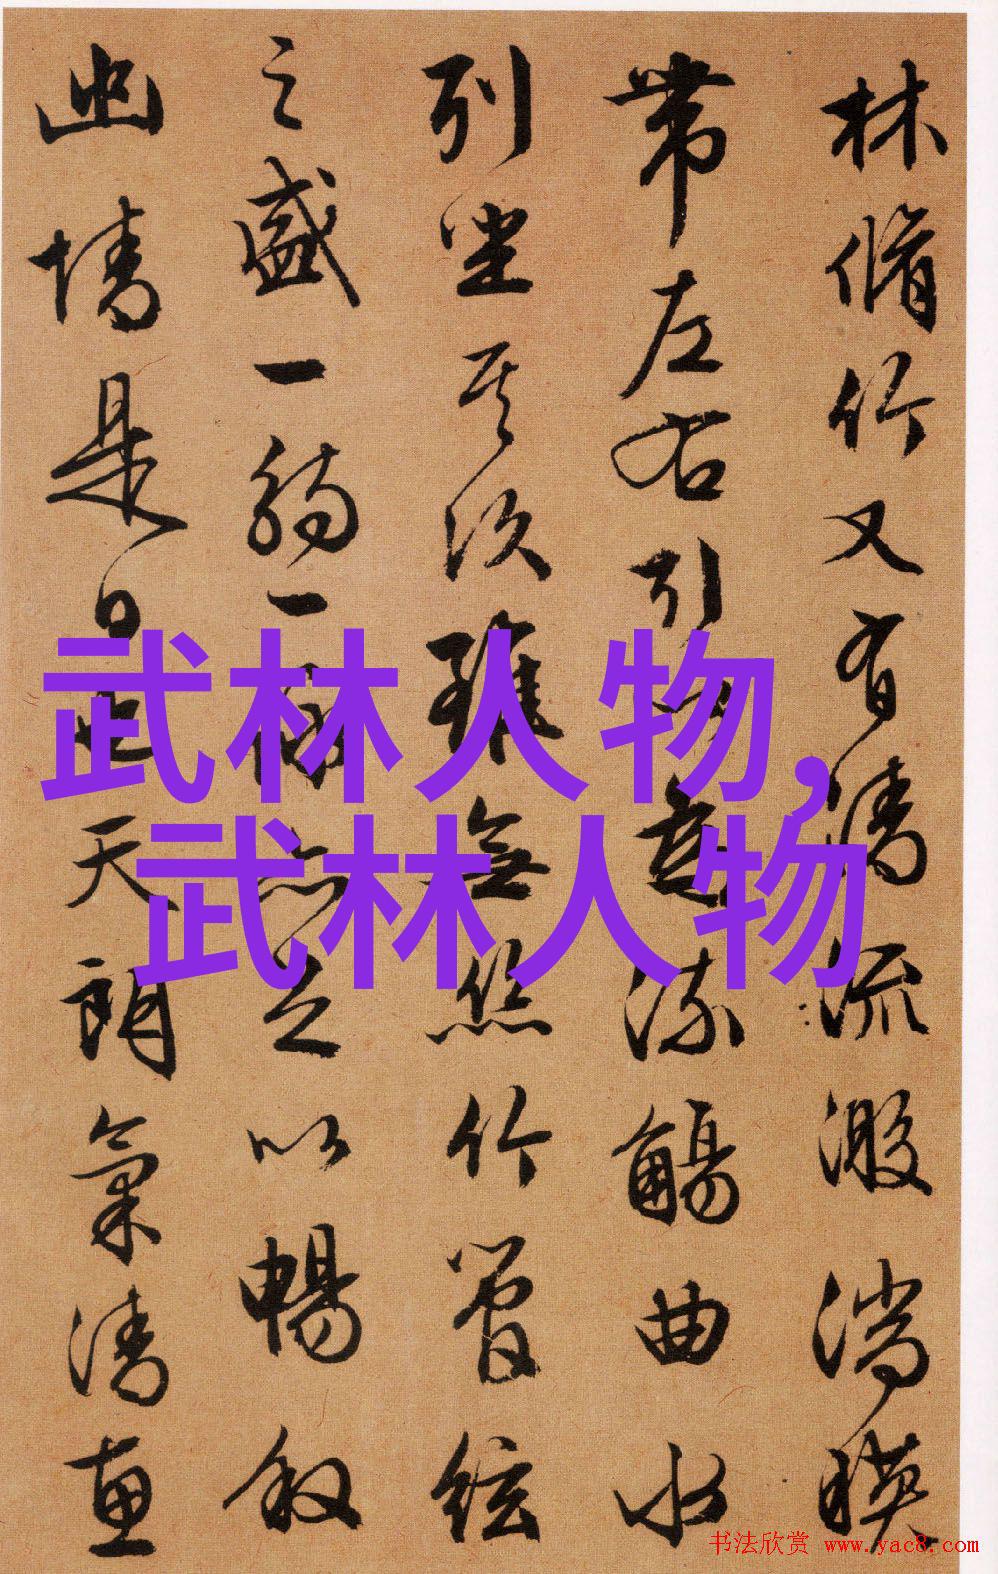 林脩竹又有清流激湍暎
帶左右引以為流觴曲水
列坐其次雖無絲竹管絃
之盛一觴一詠亦足以暢叙
幽情是日也天朗氣清惠
武林人物，
武林人物
书法欣赏 www.yac8.com